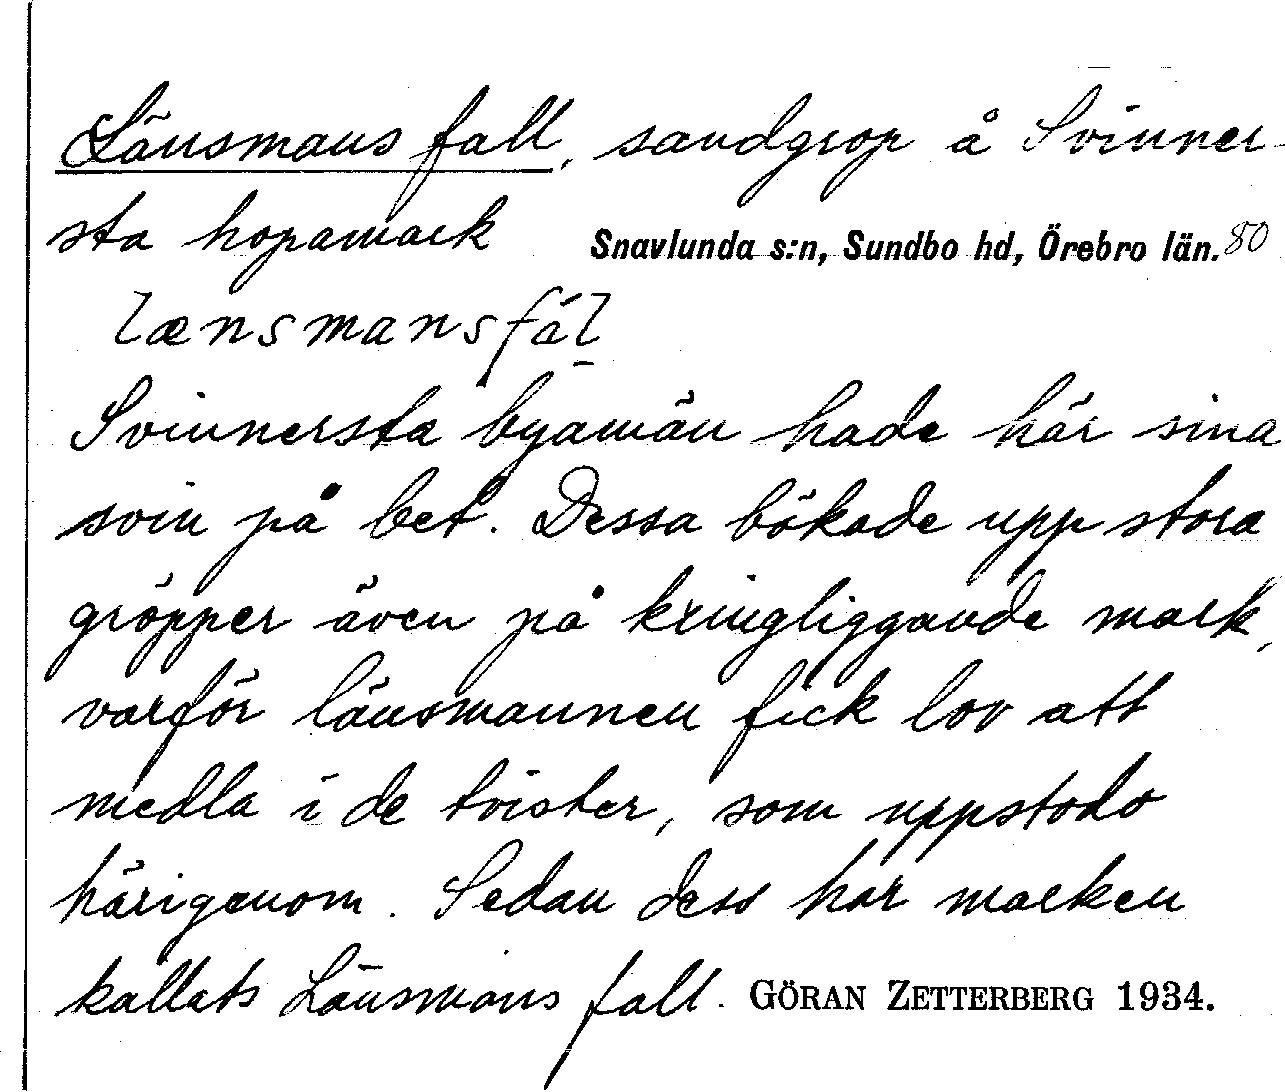 Länsmans fall, sandgrop å Svinner-
sta hopamark Snavlunda s:n, Sundbo hd, Örebro län. 80
lænsmansfál
Svinnersta byamän hade här sina
svin på bet. Dessa bökade upp stora
gröpper även på kringliggande mark,
varför länsmannen fick lov att
medla i de tvister, som uppstodo
härigenom. Sedan dess har marken
kallats Länsmans fall. GÖRAN ZETTERBERG 1934.